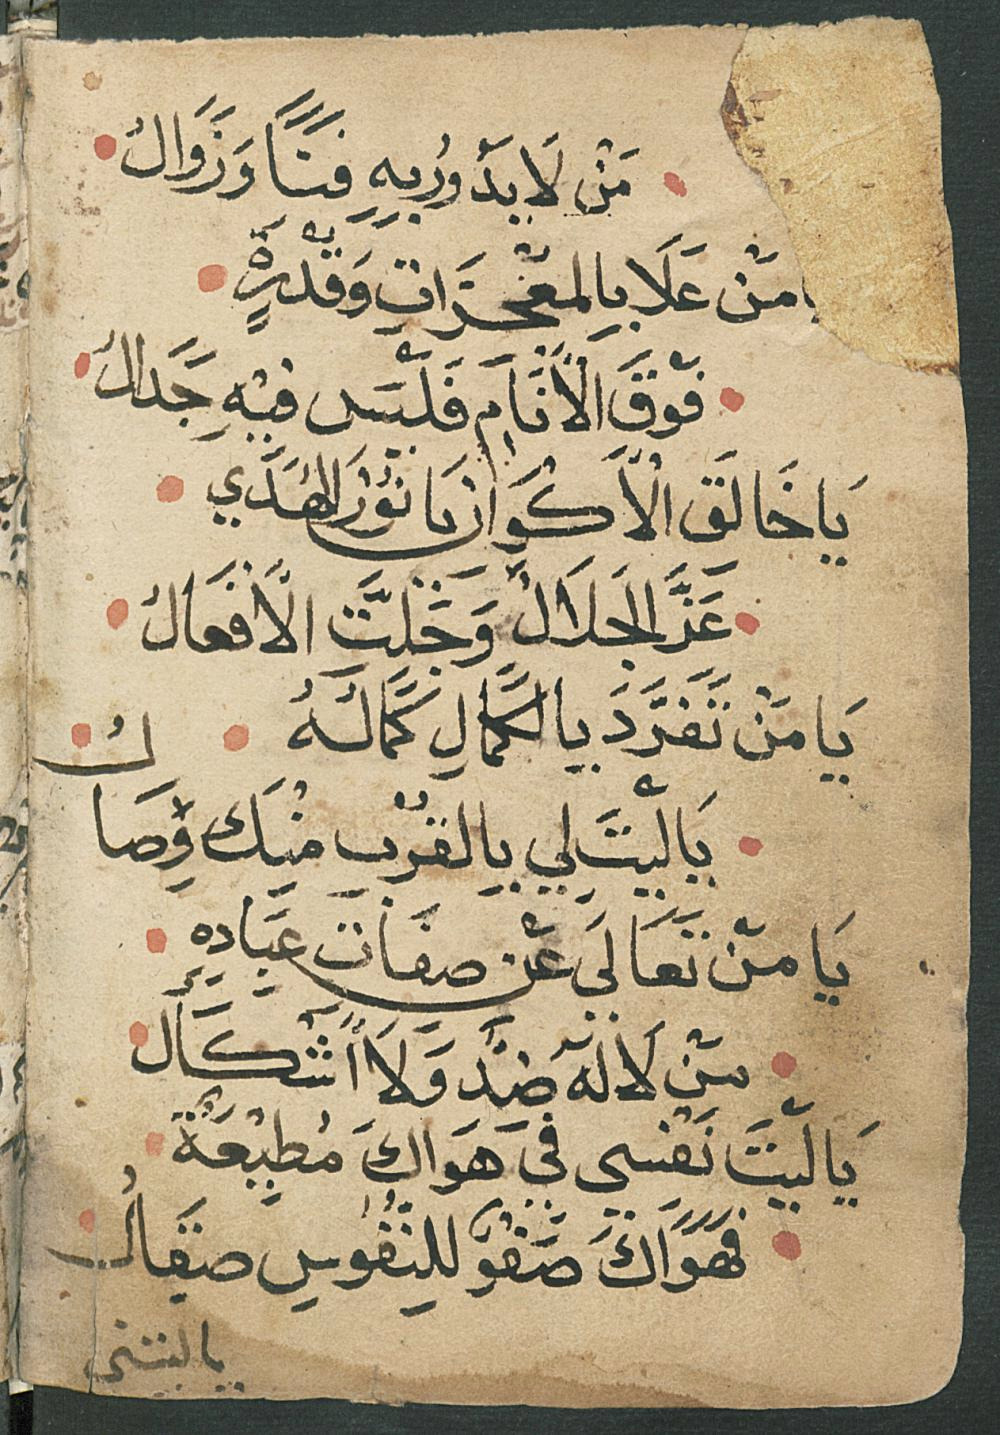 مَنْ لَا يَدُورُ بِهِ فَنًا وَزَوَالُ
مَنْ عَلَا بِالمُعْجِزَاتِ وَقُدْرَةٍ
فَوْقَ الْأَنَامِ فَلَيْسَ فِيْهِ جَدَالُ
يَا خَالَقَ الْأَكْوَانِ يَا نُوْرَ الهُدَي
عَزَّ الجَلَالُ وَجَلَّتْ الْأَفْعَالُ
يَا مَنْ تَفَرَّدَ بِالكَمَالِ كَمَالَهُ
يَالَيْتَ لِي بِالقُرْبِ مِنْكَ وِصَالُ
يَا مَنْ تَعَالَي عَنْ صِفَاتِ عِبَادِهِ
مَنْ لَا لَهُ ضِدٌّ وَلَا أَشْكَالُ
يَالَيْتَ نَفْسِي فِي هَوَاكَ مُطِيْعَةٌ
فَهَوَاكَ صَفْوٌ لِلنُّفُوسِ صِقَالُ
ياليتني